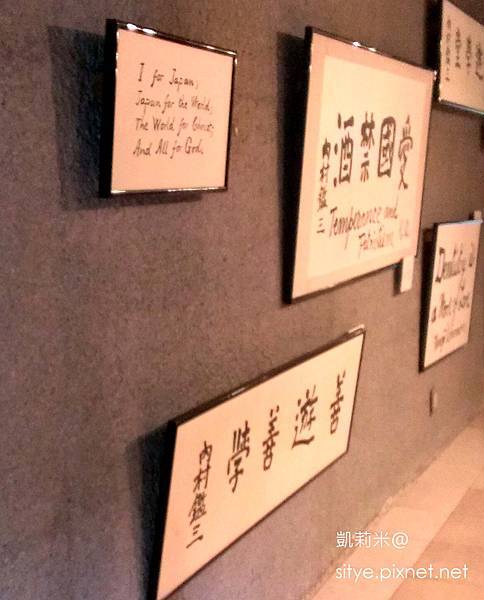 I for Japan;
Japan for the World;
The World for Christ;
And All for God.
愛國禁酒
内村鑑三
Temperance and
Patriotism.
善遊善學
内村鑑三
is
a
凱莉米@
sitye.pixnet.net